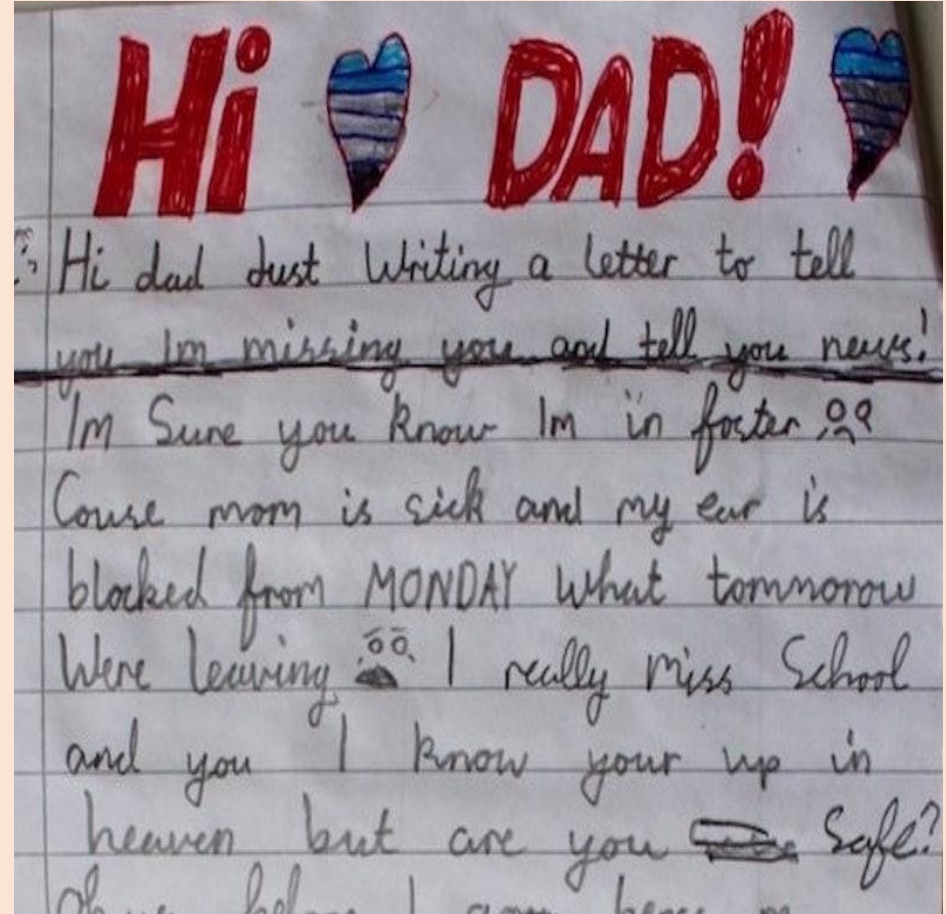 Hi DAD!
Hi dad Just Writing a letter to tell
you Im missing you and tell you news!
Im Sure you know Im in foster
Couse mom is sick and my ear is
blocked from MONDAY What tommorow
Were leaving I really miss School
and you I know your up in
heaven but are you Safe?